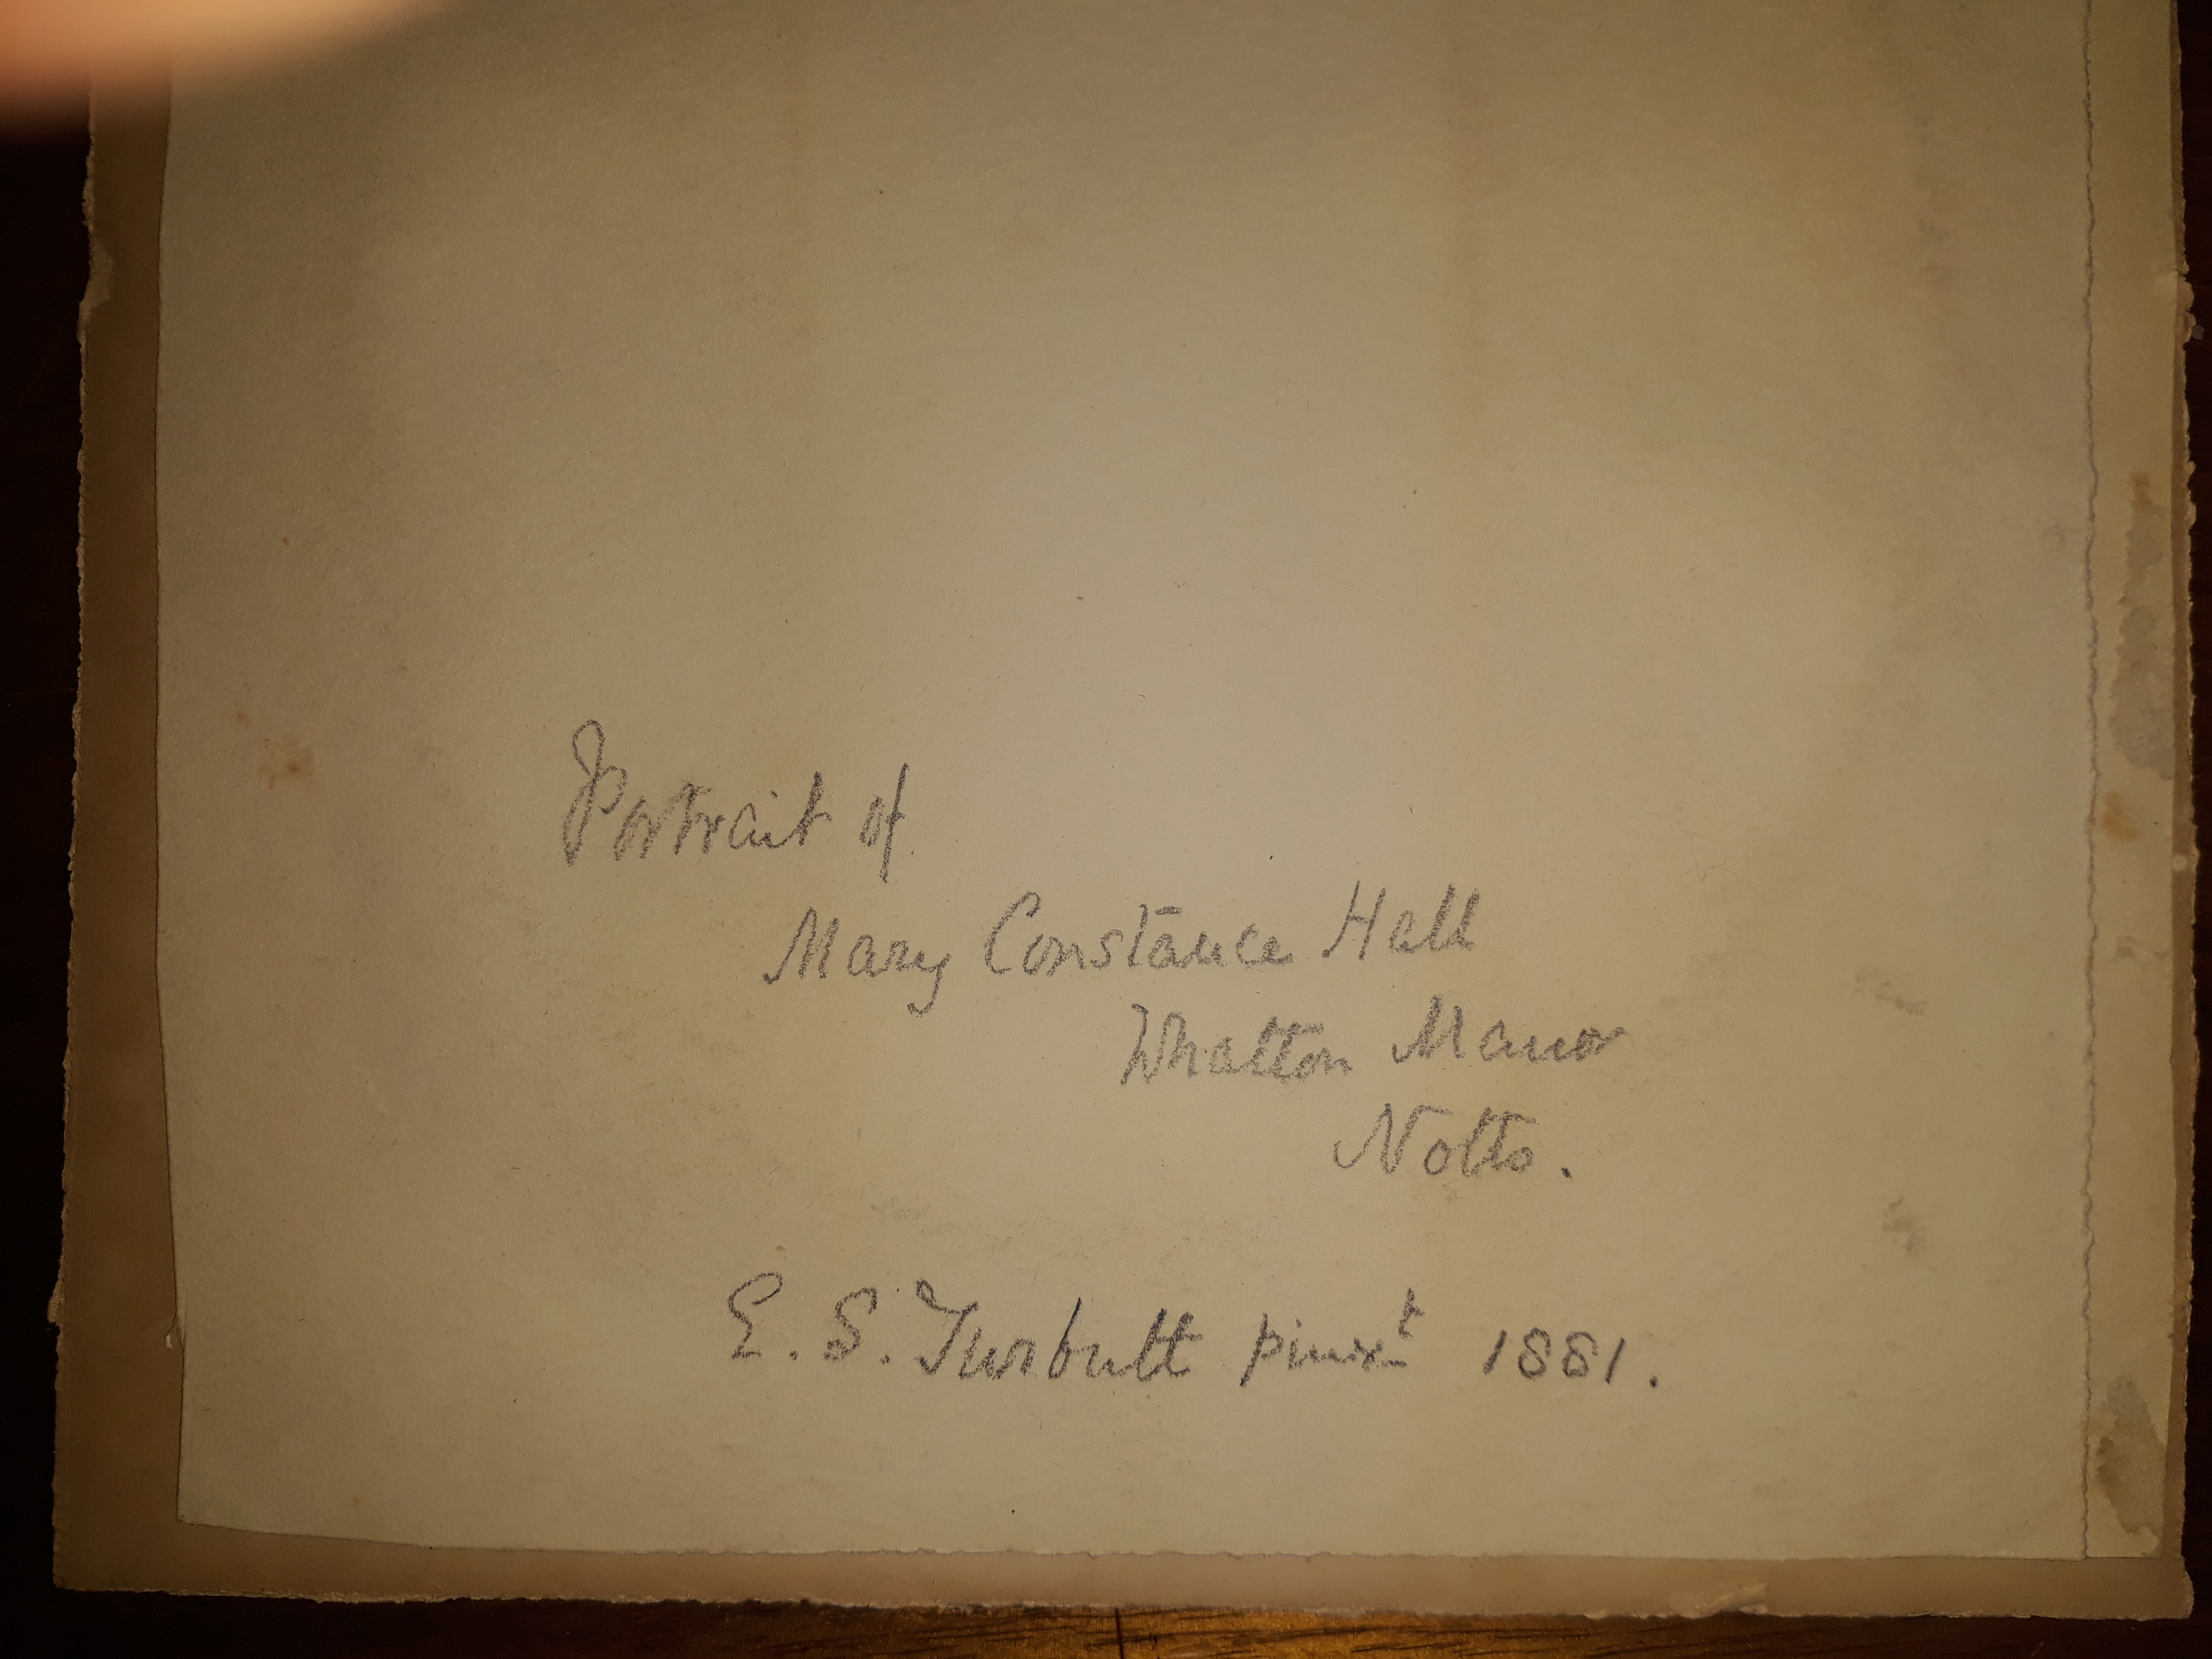 Portrait of
Mary Constance Hall
Whatton Manor
Notts.
E. S. Turbutt pinxt 1881.